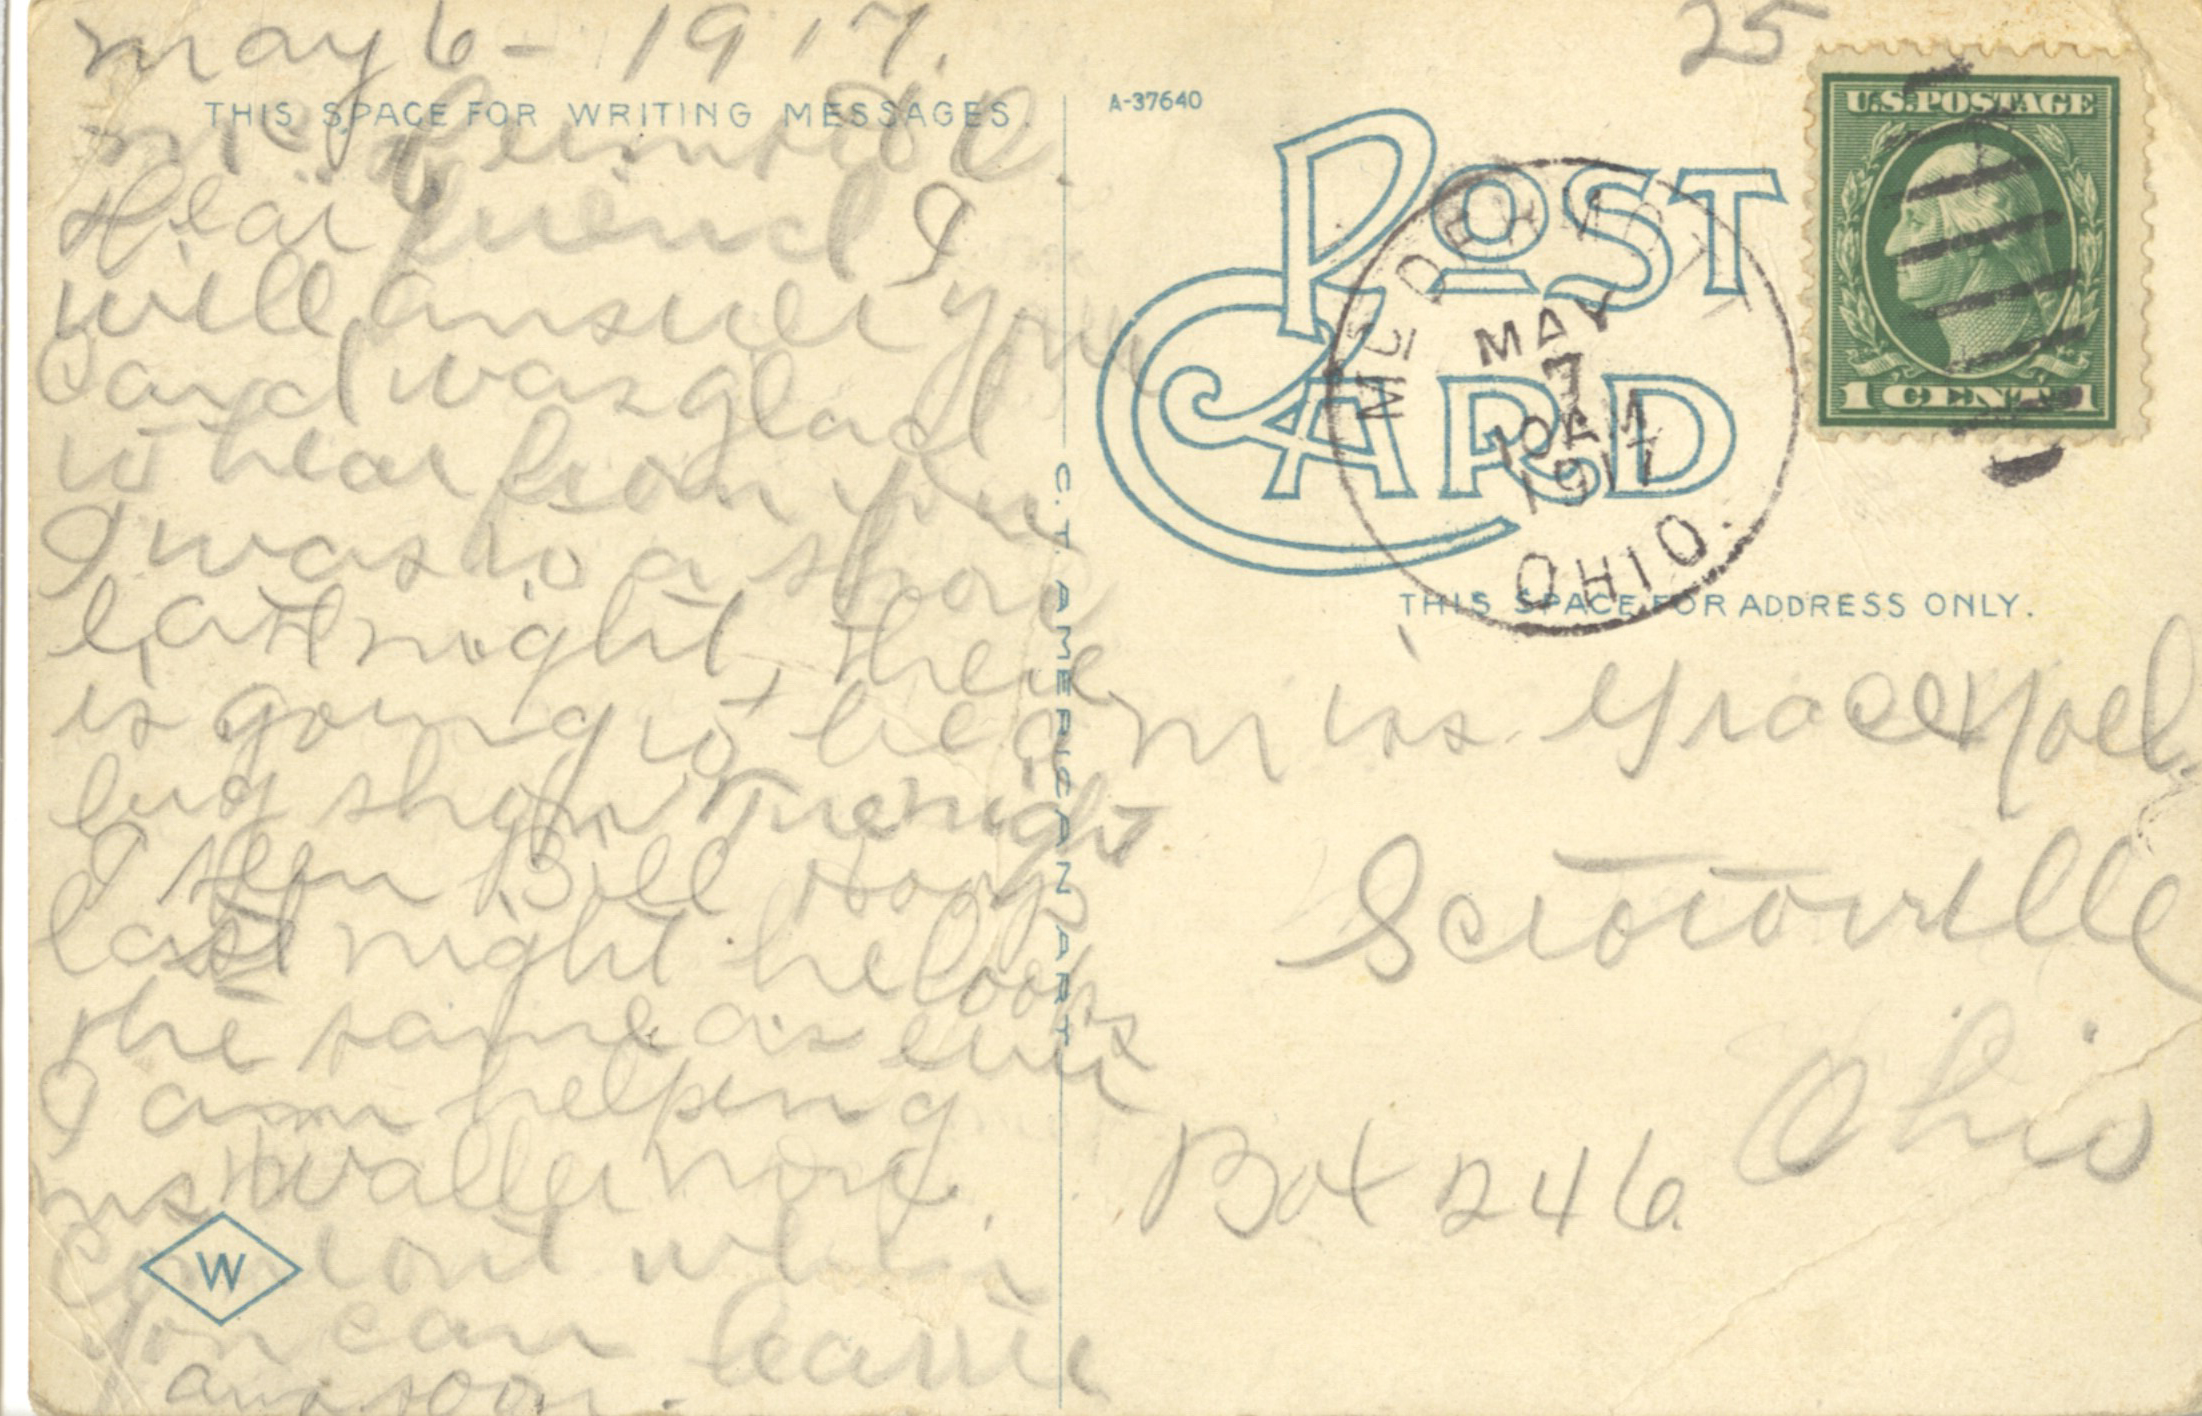 25
May 6 - 1917.
THIS SPACE FOR WRITING MESSAGES.
Dear friend I
will answer your
card was glad
to hear from you
I was to a show
last night, there
is going to be a
big show Tue night
I seen Bill
last night he looks
the same as ever
I am helping
now.
Com out when
you can
ans soon. Carrie
C. T. AMERICAN ART
W
A-37640
POST CARD
MC DERMOTT
MAY
7
10 AM
1917
OHIO.
U.S. POSTAGE
1 CENT 1
THIS SPACE FOR ADDRESS ONLY.
Miss. Grace Noel
Sciotoville
Ohio
Box 246